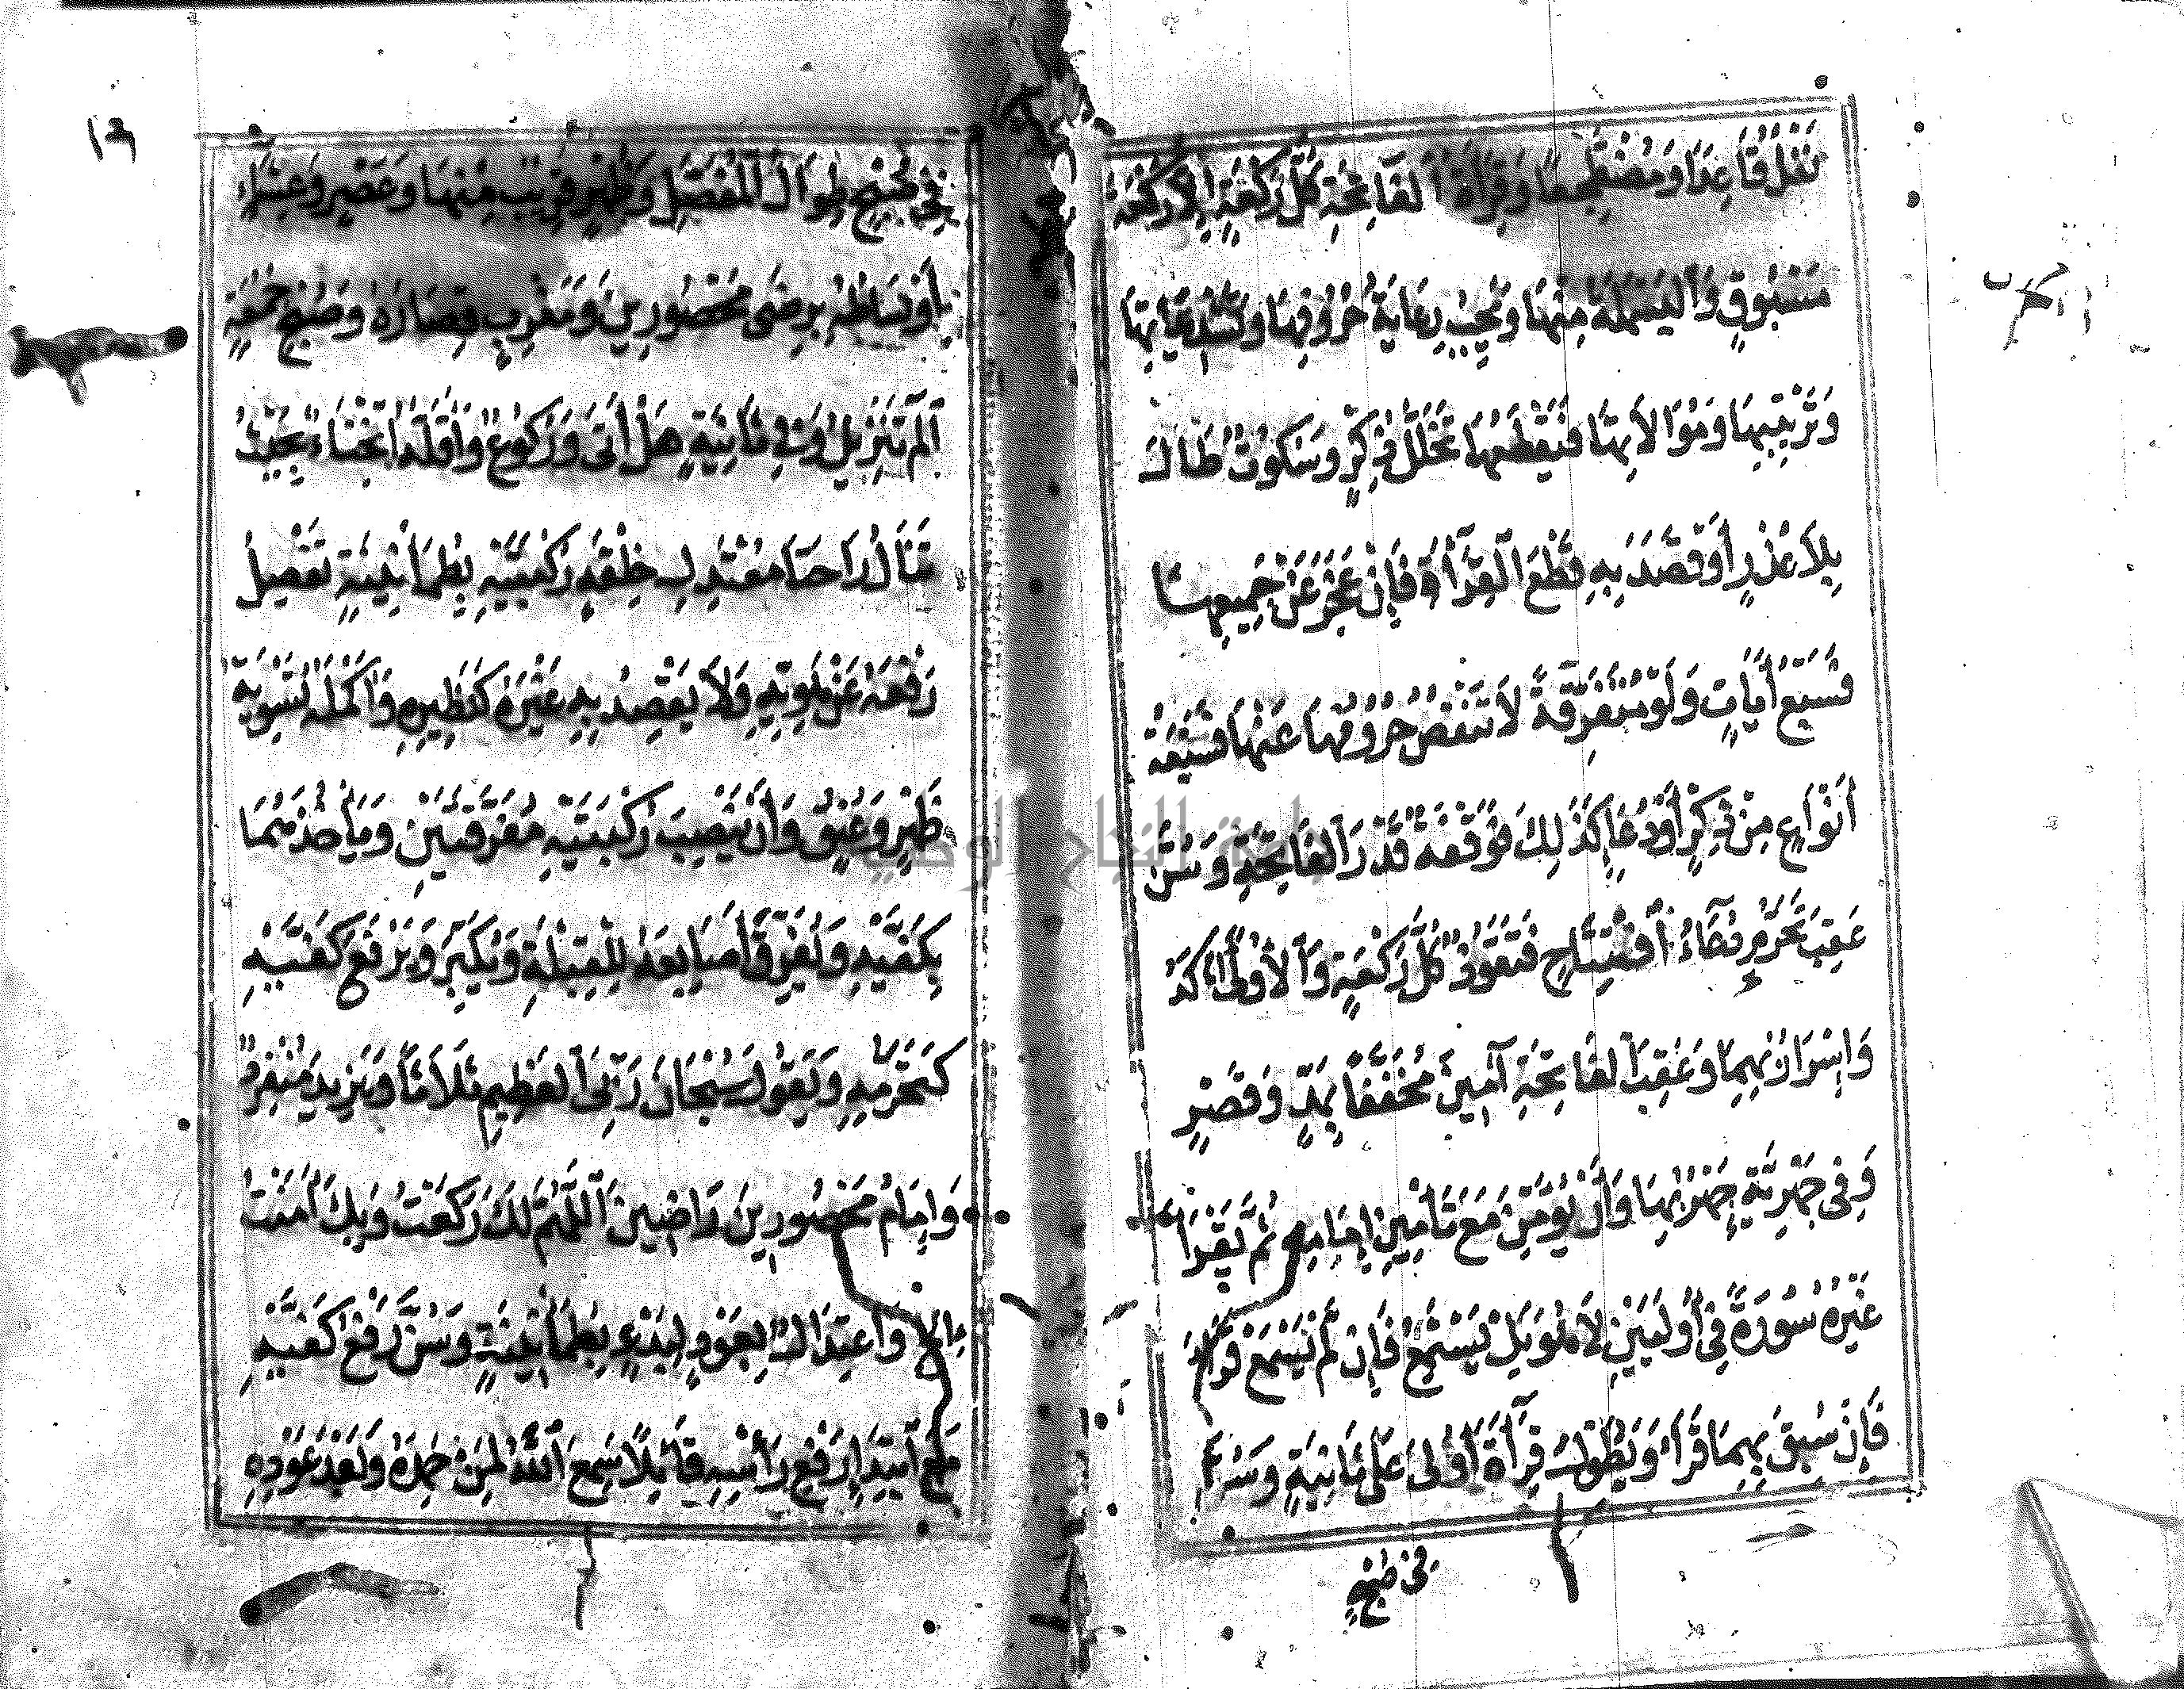 نَفْلُ قَاعِدًا وَمُضْطَجِعًا وَقِرَاءَةُ الْفَاتِحَةِ كُلَّ رَكْعَةٍ إِلَّا رَكْعَةَ
مَسْبُوقٍ وَالْبَسْمَلَةُ مِنْهَا وَتَجِبُ رِعَايَةُ حُرُوفِهَا وَتَشْدِيدَاتِهَا
وَتَرْتِيبِهَا وَمُوَالَاتِهَا فَيَقْطَعُهَا تَخَلُّلُ ذِكْرٍ وَسُكُوتٌ طَالَ
بِلَا عُذْرٍ أَوْ قَصَدَ بِهِ قَطْعَ الْقِرَاءَةِ فَإِنْ عَجَزَ عَنْ جَمِيعِهَا
فَسَبْعُ أٰيَاتٍ وَلَوْ مُتَفَرِّقَةً لَا تَنْقُصُ حُرُوفُهَا عَنْهَا فَسَبْعَةُ
أَنْوَاعٍ مِنْ ذِكْرٍ أَوْ دُعَاءٍ كَذَلِكَ فَوَقْفَةٌ قَدْرَ الْفَاتِحَةِ وَسُنَّ
عَقِبَ تَحَرُّمٍ دُعَاءُ افْتِتَاحٍ فَتَعَوُّذٌ كُلَّ رَكْعَةٍ وَالْأُولَى أٰكَدُ
وَإِسْرَارٌ بِهِمَا وَعَقِبَ الْفَاتِحَةِ آمِينَ مُخَفَّفًا بِمَدٍّ وَقَصْرٍ
وَفِى جَهْرِيَّةٍ جَهْرٌ بِهَا وَأَنْ يُؤَمِّنَ مَعَ تَأْمِينِ إِمَامِهِ ثُمَّ يَقْرَأُ
غَيْرُهُ سُورَةً فِي أُولَيَيْنِ لَا هُوَ بَلْ يَسْتَمِعُ فَإِنْ لَمْ يَسْمَعْ قَرَأَ
فَإِنْ سُبِقَ بِهِمَا قَرَأَ وَيُطَوِّلُ قِرَاءَةَ أُولَى عَلَى ثَانِيَةٍ وَسُنَّ
فى صُبْحٍ
١٣
فِي صُبْحٍ طِوَالُ الْمُفَصَّلِ وَظُهْرٍ قَرِيبٌ مِنْهَا وَعَصْرٍ وَعِشَاءٍ
أَوْسَاطُهُ بِرِضَى مَحْصُورِينَ وَمَغْرِبٍ قِصَارُهُ وَصُبْحِ جُمُعَةٍ
الٓمٓ تَنْزِيلُ وَفِي ثَانِيَةٍ هَلْ أَتَى وَرُكُوعٌ وَأَقَلُّهُ انْحِنَاءٌ بِحَيْثُ
تَنَالُ رَاحَتَا مُعْتَدِلِ خِلْقَةٍ رُكْبَتَيْهِ بِطُمَأْنِينَةٍ تَفْصِلُ
رَفْعَهُ عَنْ هُوِيِّهِ وَلَا يَقْصِدُ بِهِ غَيْرَهُ كَنَظِيرِهِ وَأَكْمَلُهُ تَسْوِيَةُ
ظَهْرٍ وَعُنُقٍ وَأَنْ يَنْصِبَ رُكْبَتَيْهِ مُفَرَّقَتَيْنِ وَيَأْخُذَهُمَا
بِكَفَّيْهِ وَيُفَرِّقَ أَصَابِعَهُ لِلْقِبْلَةِ وَيُكَبِّرَ وَيَرْفَعَ كَفَّيْهِ
كَتَحَرُّمِهِ وَيَقُولَ سُبْحَانَ رَبِّىَ الْعَظِيمِ ثَلَاثًا وَيَزِيدَ مُنْفَرِدٌ
وَإِمَامُ مَحْصُورِينَ رَاضِينَ اللَّهُمَّ لَكَ رَكَعْتُ وَبِكَ أٰمَنْتُ
الخ وَاعْتِدَالٌ بِعَوْدٍ لِبَدْءٍ بِطُمَأْنِينَةٍ وَسُنَّ رَفْعُ كَفَّيْهِ
مَعَ ابْتِدَاءِ رَفْعِ رَأْسِهِ قَائِلًا سَمِعَ اللَّهُ لِمَنْ حَمِدَهُ وَبَعْدَ عَوْدِهِ
جامعة النجاح الوطنية